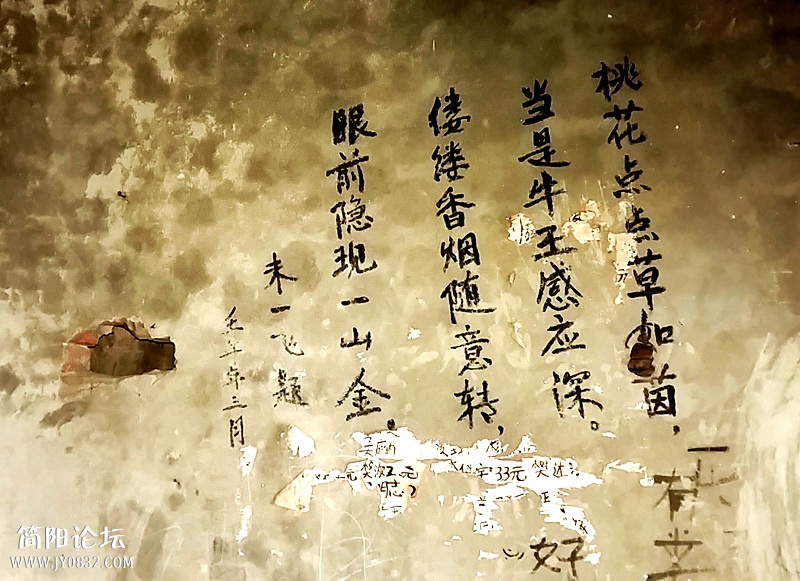 桃花点点草如茵，
当是牛王感应深。
偻缕香烟随意转，
眼前隐现一山金。
未一飞题
壬午年三月
33元
好
简阳论坛
WWW.JY0832.COM